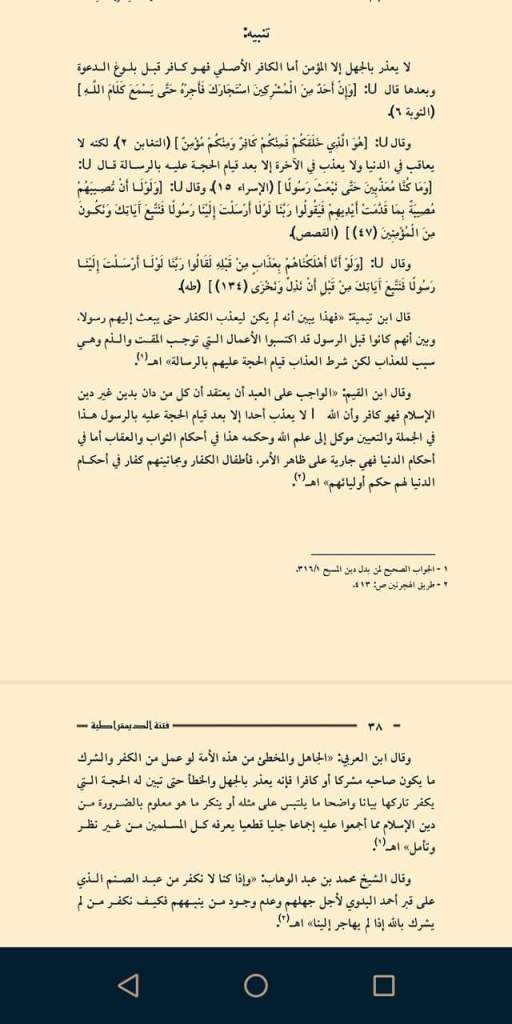 تنبيه:
لا يعذر بالجهل إلا المؤمن أما الكافر الأصلي فهو كافر قبل بلوغ الدعوة
وبعدها قال U: [وَإِنْ أَحَدٌ مِنَ الْمُشْرِكِينَ اسْتَجَارَكَ فَأَجِرْهُ حَتَّى يَسْمَعَ كَلَامَ اللَّهِ]
(التوبة ٦).
وقال U: [هُوَ الَّذِي خَلَقَكُمْ فَمِنْكُمْ كَافِرٌ وَمِنْكُمْ مُؤْمِنٌ] (التغابن ٢)، لكنه لا
يعاقب في الدنيا ولا يعذب في الآخرة إلا بعد قيام الحجة عليه بالرسالة قال U:
[وَمَا كُنَّا مُعَذِّبِينَ حَتَّى نَبْعَثَ رَسُولًا] (الإسراء ١٥)، وقال U: [وَلَوْلَا أَنْ تُصِيبَهُمْ
مُصِيبَةٌ بِمَا قَدَّمَتْ أَيْدِيهِمْ فَيَقُولُوا رَبَّنَا لَوْلَا أَرْسَلْتَ إِلَيْنَا رَسُولًا فَنَتَّبِعَ آيَاتِكَ وَنَكُونَ
مِنَ الْمُؤْمِنِينَ (٤٧)] (القصص).
وقال U: [وَلَوْ أَنَّا أَهْلَكْنَاهُمْ بِعَذَابٍ مِنْ قَبْلِهِ لَقَالُوا رَبَّنَا لَوْلَا أَرْسَلْتَ إِلَيْنَا
رَسُولًا فَنَتَّبِعَ آيَاتِكَ مِنْ قَبْلِ أَنْ نَذِلَّ وَنَخْزَى (١٣٤)] (طه).
قال ابن تيمية: «فهذا يبين أنه لم يكن ليعذب الكفار حتى يبعث إليهم رسولا،
وبين أنهم كانوا قبل الرسول قد اكتسبوا الأعمال التي توجب المقت والذم وهي
سبب للعذاب لكن شرط العذاب قيام الحجة عليهم بالرسالة» اهـ(١).
وقال ابن القيم: «الواجب على العبد أن يعتقد أن كل من دان بدين غير دين
الإسلام فهو كافر وأن الله ا لا يعذب أحدا إلا بعد قيام الحجة عليه بالرسول هذا
في الجملة والتعيين موكل إلى علم الله وحكمه هذا في أحكام الثواب والعقاب أما في
أحكام الدنيا فهي جارية على ظاهر الأمر، فأطفال الكفار ومجانينهم كفار في أحكام
الدنيا لهم حكم أوليائهم» اهـ(٢).
١ - الجواب الصحيح لمن بدل دين المسيح ٣١٦/١.
٢ - طريق الهجرتين ص: ٤١٣.
- ٣٨ فتنة الديمقراطية
وقال ابن العربي: «الجاهل والمخطئ من هذه الأمة لو عمل من الكفر والشرك
ما يكون صاحبه مشركا أو كافرا فإنه يعذر بالجهل والخطأ حتى تبين له الحجة التي
يكفر تاركها بيانا واضحا ما يلتبس على مثله أو ينكر ما هو معلوم بالضرورة من
دين الإسلام مما أجمعوا عليه إجماعا جليا قطعيا يعرفه كل المسلمين من غير نظر
وتأمل» اهـ(١).
وقال الشيخ محمد بن عبد الوهاب: «وإذا كنا لا نكفر من عبد الصنم الذي
على قبر أحمد البدوي لأجل جهلهم وعدم وجود من ينبههم فكيف نكفر من لم
يشرك بالله إذا لم يهاجر إلينا» اهـ(٢).